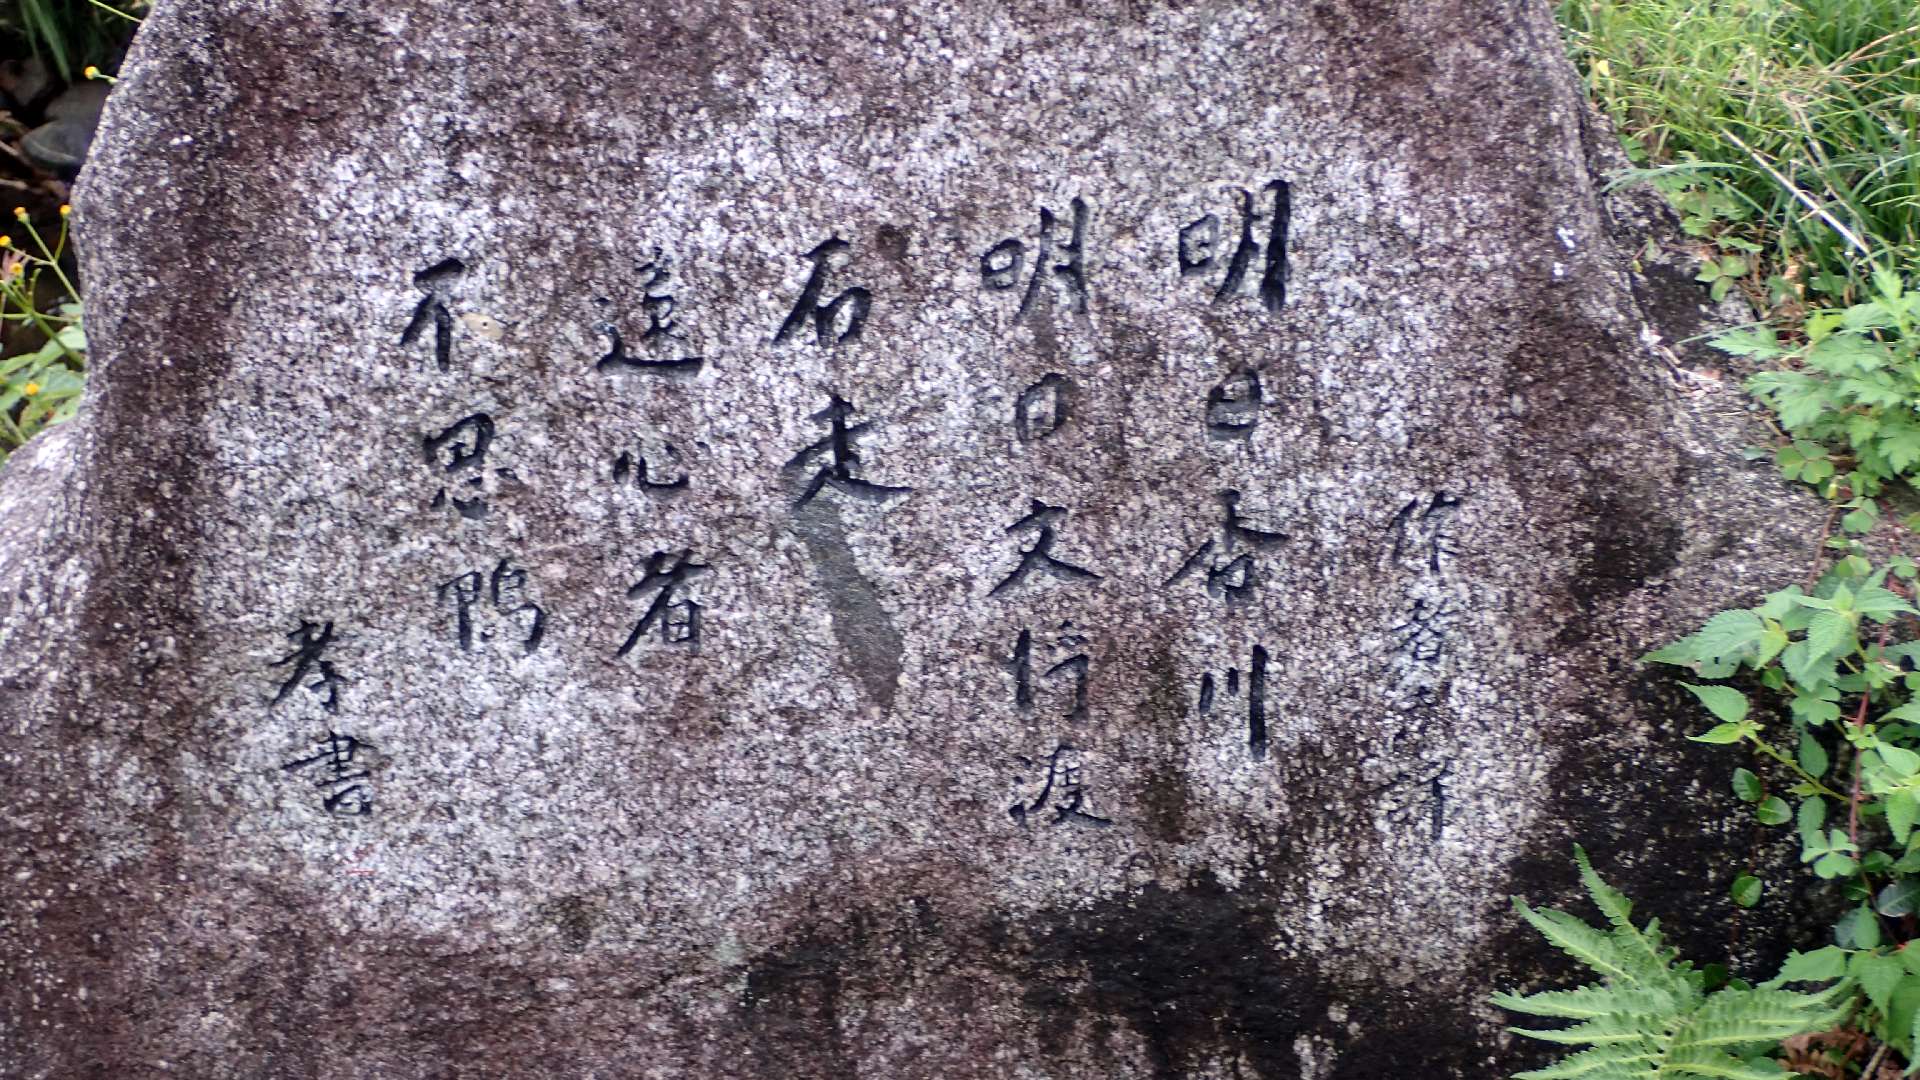 作者不詳
明日香川
明日文将渡
石走
遠心者
不思鴨
孝書